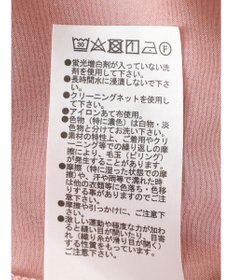 30 F
●蛍光増白剤が入っていない洗
剤を使用して下さい。
●長時間水に浸漬しないで下さ
い。
●クリーニングネットを使用して
下さい。
●アイロンあて布使用。
●色物(特に濃色)は白物、淡
色と分けてお洗い下さい。
●素材の特性上、ご着用やクリ
ーニング等での繰り返しの摩
擦により、毛玉(ピリング)
が発生することがあります。
●摩擦(特に湿った状態での摩
擦)や、汗や雨等で濡れた時
は他の衣類等に色落ち・色移
りする事がありますのでご注
意下さい。
●摩擦や引っかけに、ご注意下
さい。
●激しい運動や極度な力が加わ
ると縫い目が開いたり、目寄
れ(織り糸が滑り目が開く)
する性質をもっています。